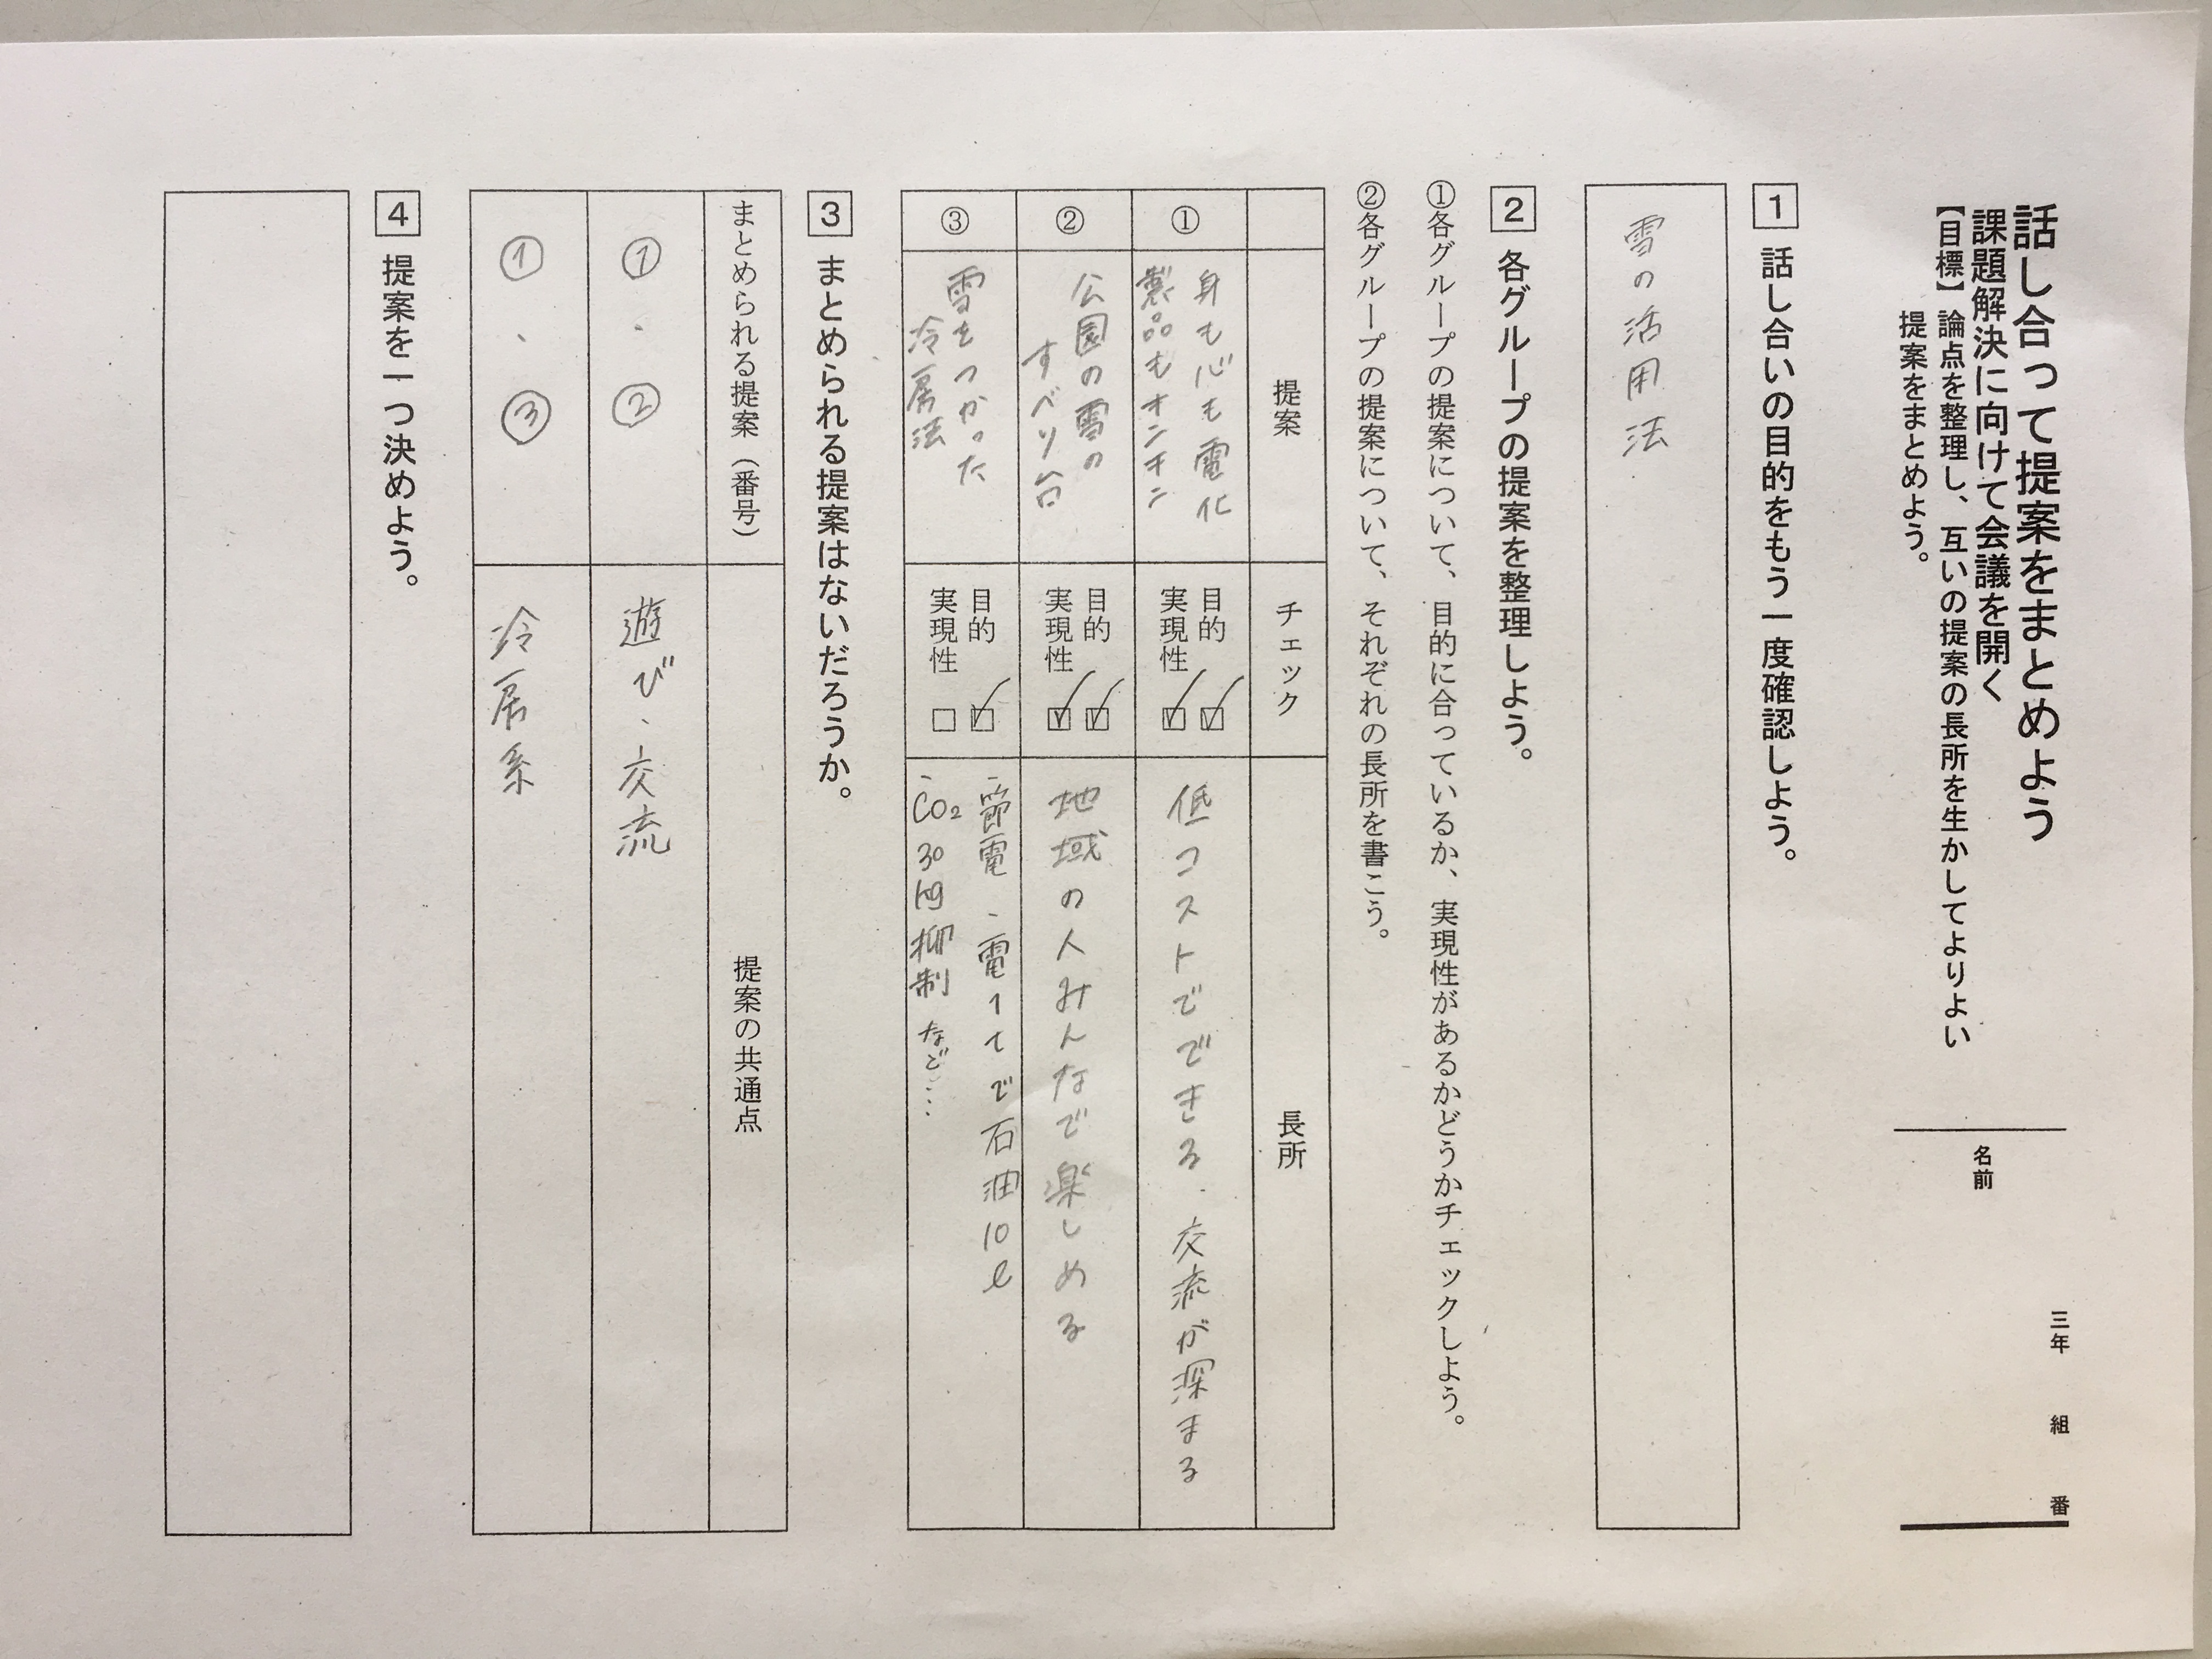 話し合って提案をまとめよう
課題解決に向けて会議を開く
【目標】論点を整理し、互いの提案の長所を生かしてよりよい
提案をまとめよう。
三年 組 番
名前
1 話し合いの目的をもう一度確認しよう。
雪の活用法
2 各グループの提案を整理しよう。
①各グループの提案について、目的に合っているか、実現性があるかどうかチェックしよう。
②各グループの提案について、それぞれの長所を書こう。
提案 チェック 長所
①
身も心も電化
製品もオンオン
目的
実現性
低コストでできる、交流が深まる
②
公園の雪の
すべり台
目的
実現性
地域の人みんなで楽しめる
③
雪をつかった
冷房法
目的
実現性
・節電・電1tで石油10ℓ
・CO2 30kg抑制 など…
3 まとめられる提案はないだろうか。
まとめられる提案（番号） 提案の共通点
①、② 遊び、交流
①、③ 冷房系
4 提案を一つ決めよう。